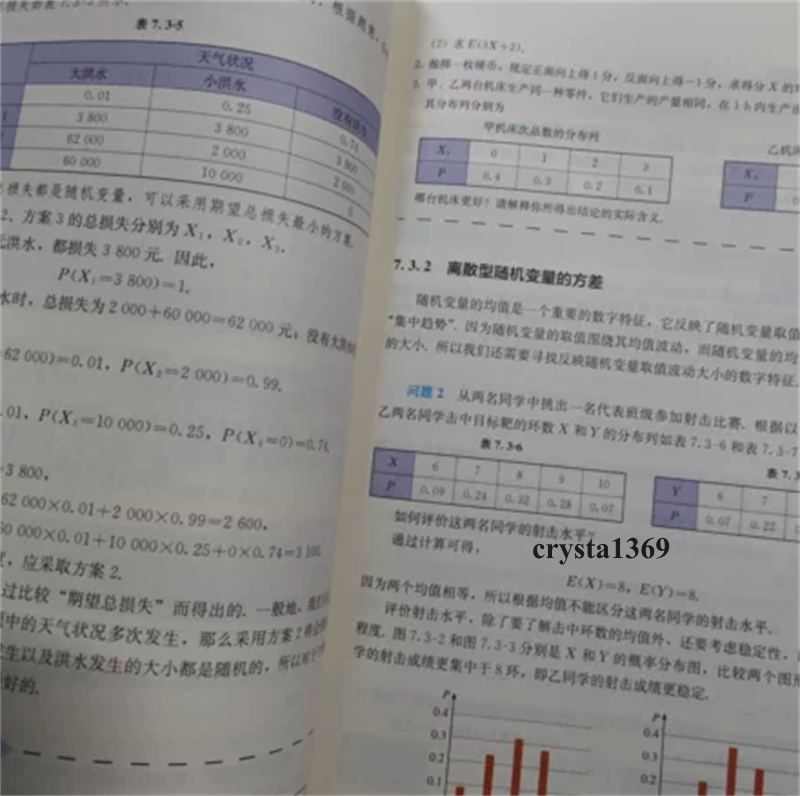 表 7.3-5
天气状况
大洪水 小洪水 没有洪水
0.01 0.25 0.74
3 800 3 800 3 800
62 000 2 000 2 000
60 000 10 000 0
总损失都是随机变量，可以采用期望总损失最小的方案.
2、方案 3 的总损失分别为 X₁，X₂，X₃.
洪水，都损失 3 800 元. 因此，
P(X₁=3 800)=1.
水时，总损失为 2 000+60 000=62 000 元；没有大洪
62 000)=0.01，P(X₂=2 000)=0.99.
01，P(X₃=10 000)=0.25，P(X₃=0)=0.74.
3 800，
62 000×0.01+2 000×0.99=2 600，
60 000×0.01+10 000×0.25+0×0.74=3 100.
，应采取方案 2.
过比较“期望总损失”而得出的. 一般地，我们
中的天气状况多次发生，那么采用方案 2
生以及洪水发生的大小都是随机的，所以对于
好的.
(2) 求 E(3X+2).
2. 抛掷一枚硬币，规定正面向上得 1 分，反面向上得 −1 分，求得分 X 的
3. 甲、乙两台机床生产同一种零件，它们生产的产量相同，在 1 h 内生产出
其分布列分别为
甲机床次品数的分布列
乙机床
X₁ 0 1 2 3
P 0.4 0.3 0.2 0.1
X₂
P
哪台机床更好？请解释你所得出结论的实际含义.
7.3.2 离散型随机变量的方差
随机变量的均值是一个重要的数字特征，它反映了随机变量取值
“集中趋势”. 因为随机变量的取值围绕其均值波动，而随机变量的均
的大小. 所以我们还需要寻找反映随机变量取值波动大小的数字特征.
问题 2 从两名同学中挑出一名代表班级参加射击比赛. 根据以
乙两名同学击中目标靶的环数 X 和 Y 的分布列如表 7.3-6 和表 7.3-7
表 7.3-6
表 7.3
X 6 7 8 9 10
P 0.09 0.24 0.32 0.28 0.07
Y 6 7
P 0.07 0.22
如何评价这两名同学的射击水平？
通过计算可得，
crysta1369
E(X)=8，E(Y)=8.
因为两个均值相等，所以根据均值不能区分这两名同学的射击水平.
评价射击水平，除了要了解击中环数的均值外，还要考虑稳定性，
程度. 图 7.3-2 和图 7.3-3 分别是 X 和 Y 的概率分布图，比较两个图形
学的射击成绩更集中于 8 环，即乙同学的射击成绩更稳定.
P
0.4
0.3
0.2
0.1
P
0.4
0.3
0.2